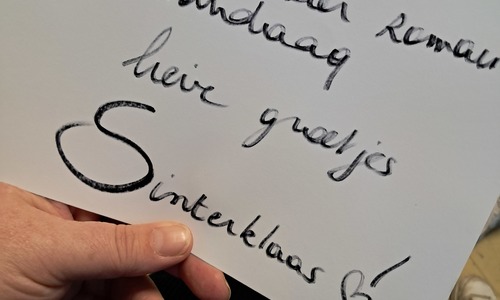 Roman
vandaag
lieve groetjes
Sinterklaas